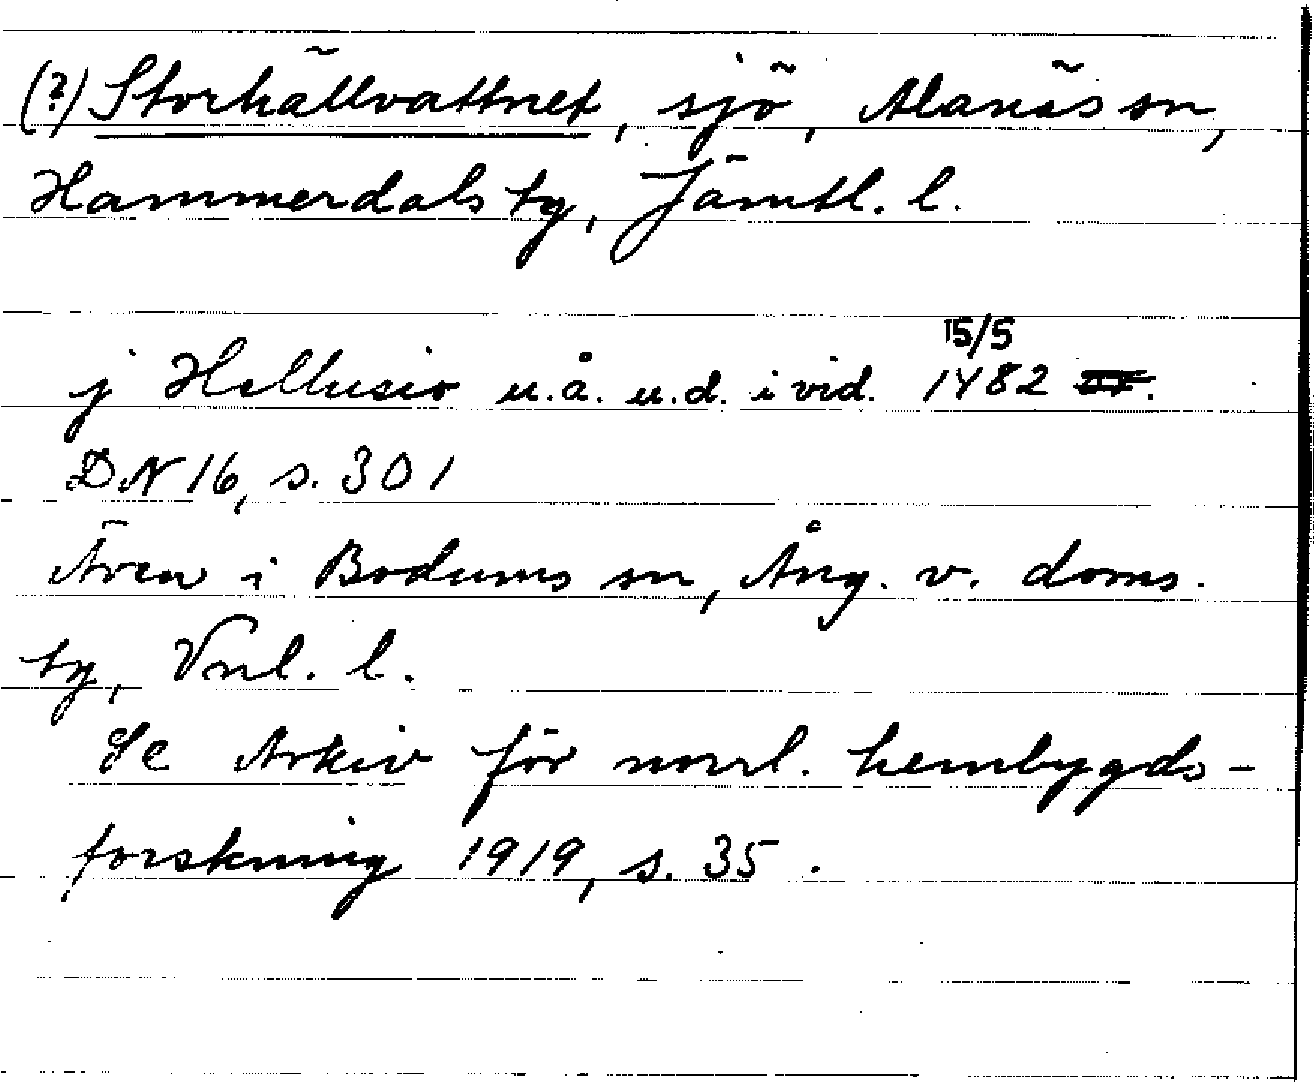 (?) Storhällvattnet, sjö, Alanäs sn,
Hammerdals tg, Jämtl. l.
15/5
j Hellusio u.å. u.d. i vid. 1482
DN 16, s. 301
i Bodums sn, Ång. v. doms.
tg, Vnl. l.
Se Arkiv för norrl. hembygds-
forskning 1919, s. 35.